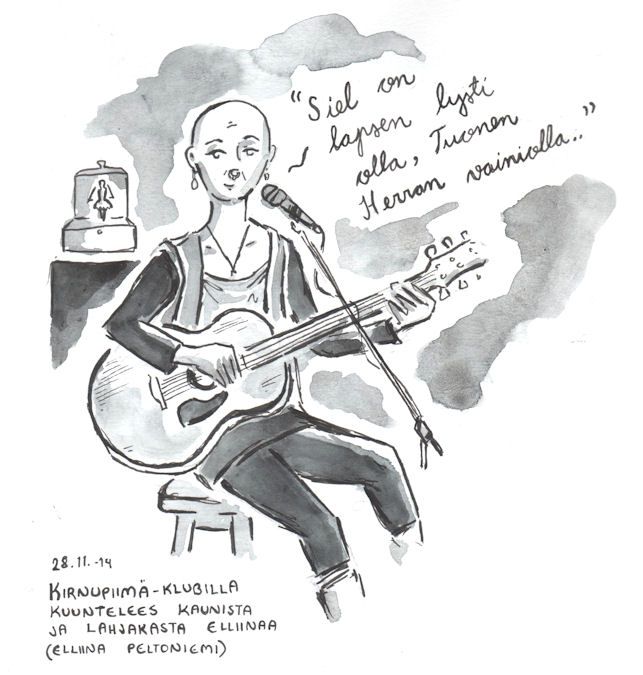 "Siel on
lapsen lysti
olla, Tuonen
Herran vainiolla.."
28.11.-14
KIRNUPIIMÄ-KLUBILLA
KUUNTELEES KAUNISTA
JA LAHJAKASTA ELLIINAA
(ELLIINA PELTONIEMI)